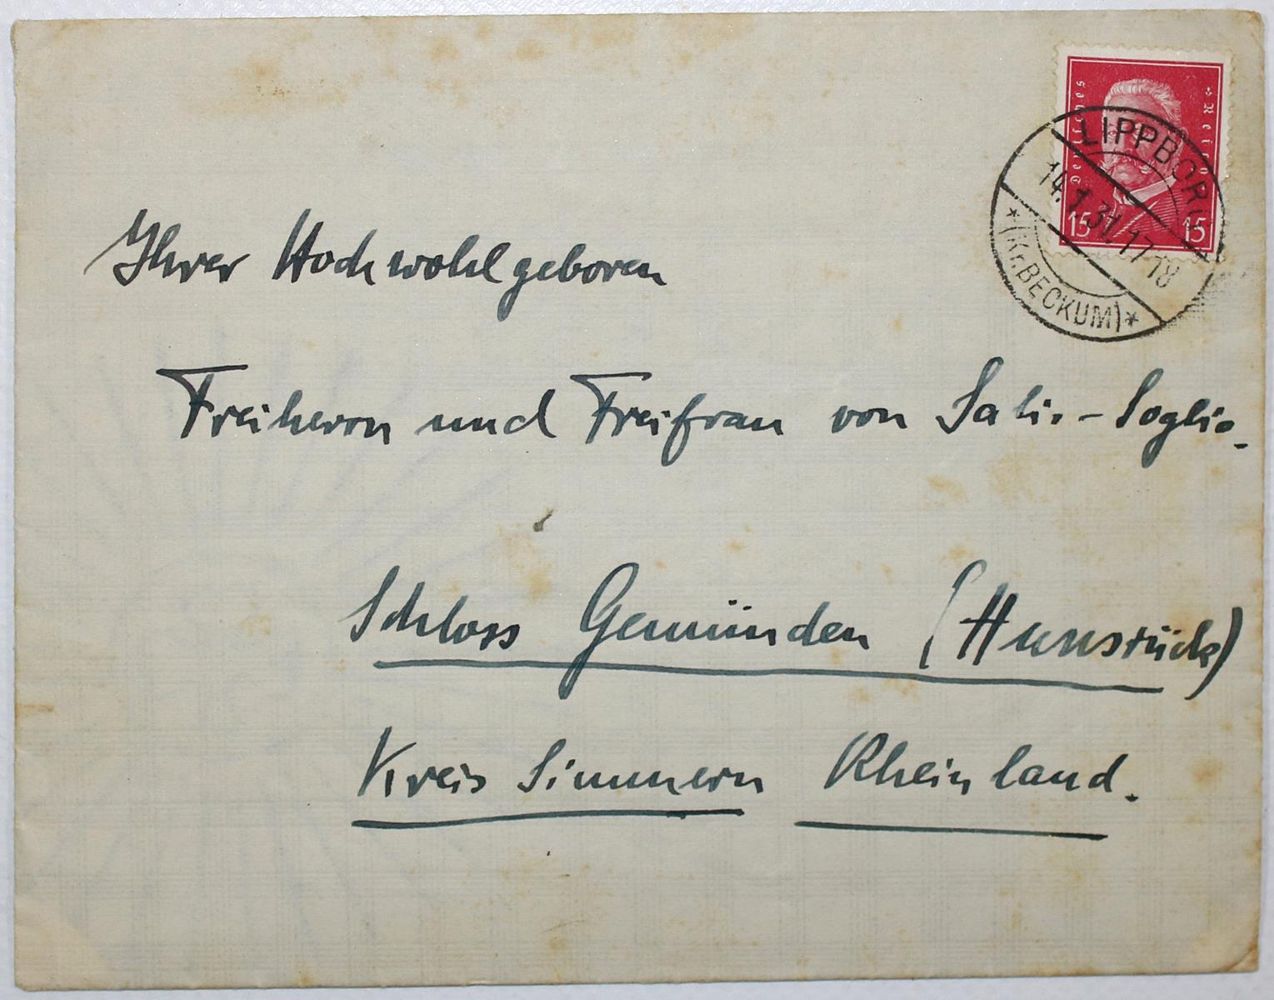 Deutsches Reich
15 15
LIPPBORG
14.1.31.17-18
*(Kr. BECKUM)*
Ihrer Hochwohlgeboren
Freiherrn und Freifrau von Salis-Soglio.
Schloss Gemünden (Hunsrück)
Kreis Simmern Rheinland.